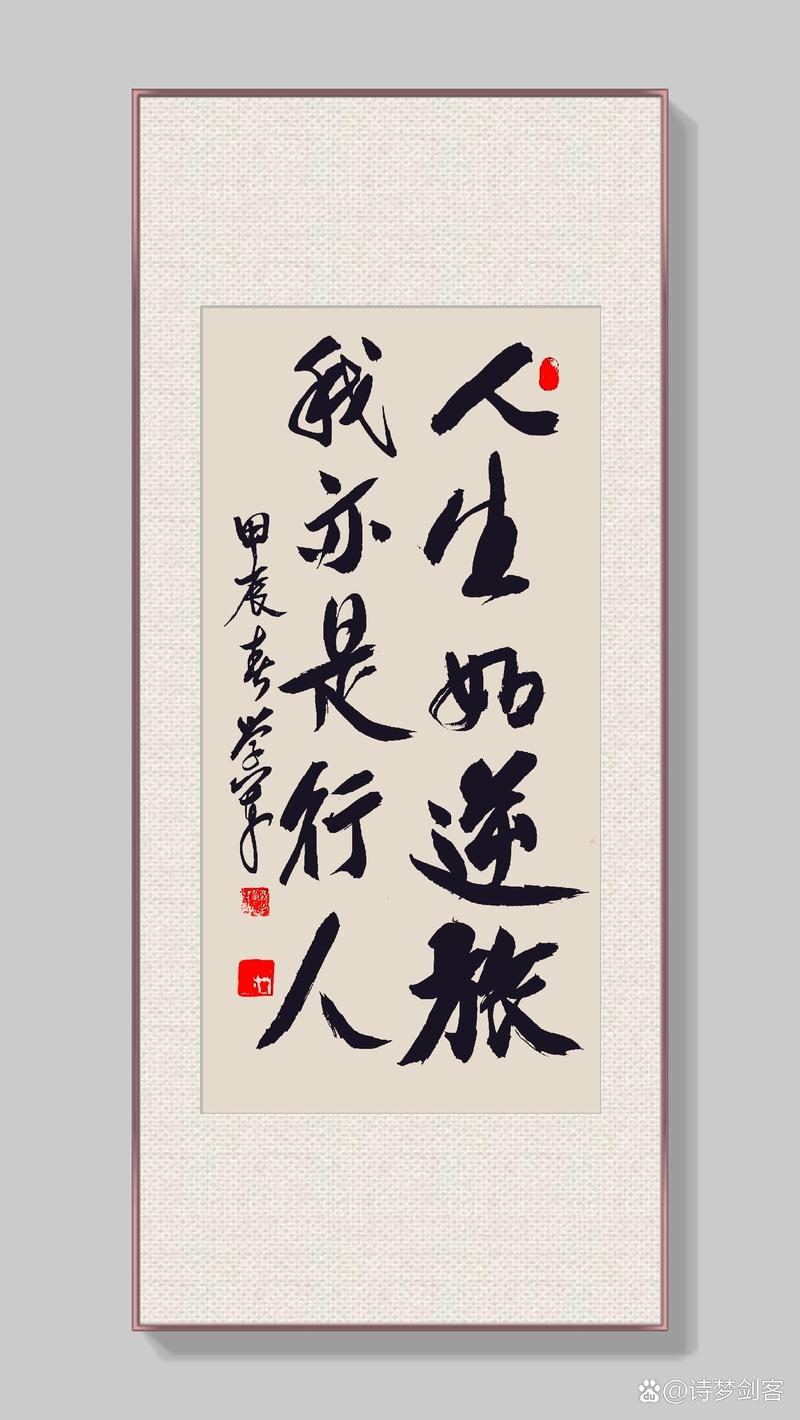 人生如逆旅
我亦是行人
甲辰春学军
du
@诗梦剑客